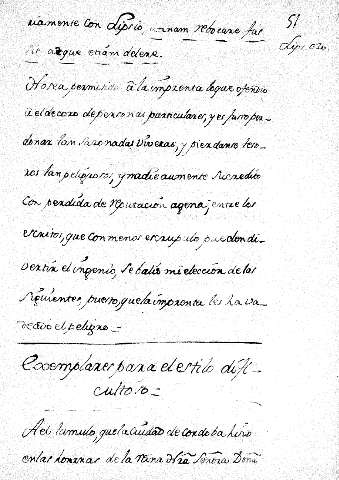 51
uamente con Lipsio utinam rebocare fas
sit atque etiam delere.
Lips. etc.
No sea permitido à la imprenta lo que ofendio
à el decoro de personas particulares, y es justo per-
donar tan sazonadas viveras, y pierdanse teso-
ros tan peligrosos, y nadie aumente su credito
con perdida de reputacion agena; entre los
escritos, que con menos escrupulo pueden di-
vertir el ingenio, se balió mi elección de los
siguientes, puesto, que la imprenta les ha va-
deado el peligro =
Exemplares para el estilo difi-
cultoso =
A el tumulo, que la ciudad de Cordoba hizo
en las honrras de la Reina Nrã Señora Doña